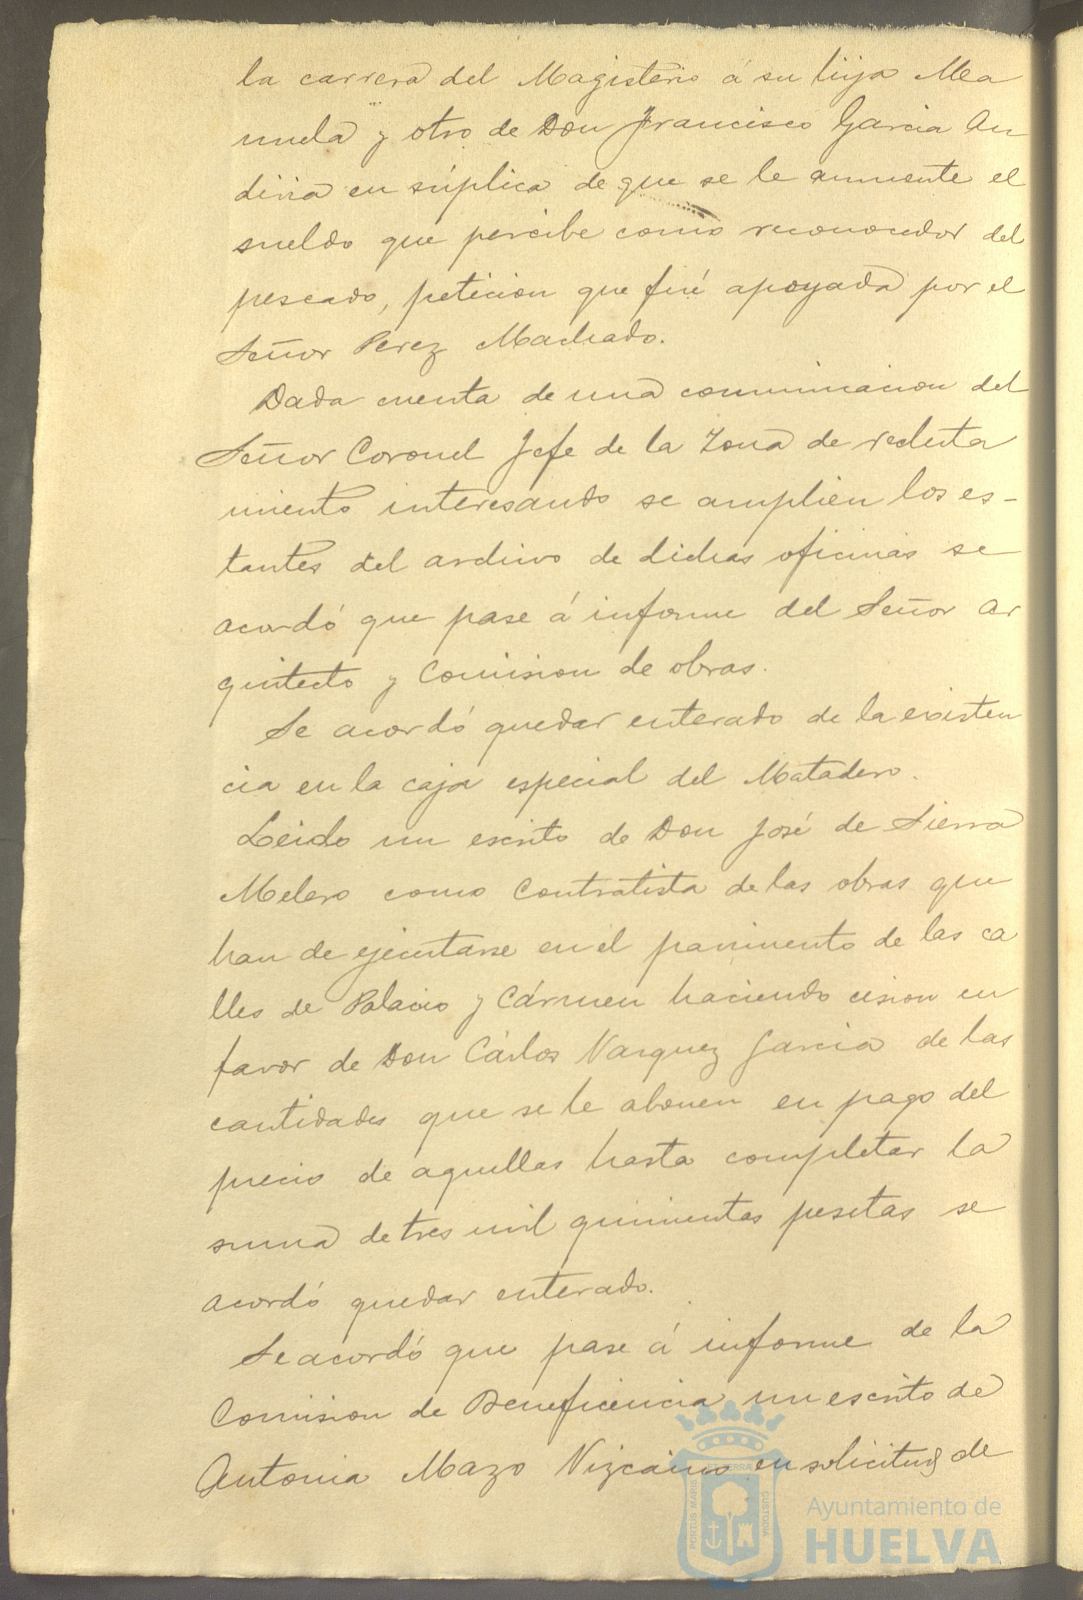 la carrera del Magisterio á su hija Ma
nuela y otro de Don Francisco Garcia An
diria en súplica de que se le aumente el
sueldo que percibe como reconocedor del
pescado, peticion que fué apoyada por el
Señor Perez Machado.
Dada cuenta de una comunicacion del
Señor Coronel Jefe de la Zona de recluta
miento interesando se amplien los es-
tantes del archivo de dichas oficinas se
acordó que pase á informe del Señor Ar
quitecto y Comision de obras.
Se acordó quedar enterado de la existen
cia en la caja especial del Matadero.
Leido un escrito de Don José de Sierra
Melero como Contratista de las obras que
han de ejecutarse en el pavimento de las ca
lles de Palacio y Cármen haciendo cesion en
favor de Don Cárlos Vazquez Garcia de las
cantidades que se le abonen en pago del
precio de aquellas hasta completar la
suma de tres mil quinientas pesetas se
acordó quedar enterado.
Se acordó que pase á informe de la
Comision de Beneficencia un escrito de
Antonia Mazo Vizcaino en solicitud de
PORTUS MARIS ET TERRA CUSTODIA
Ayuntamiento de
HUELVA